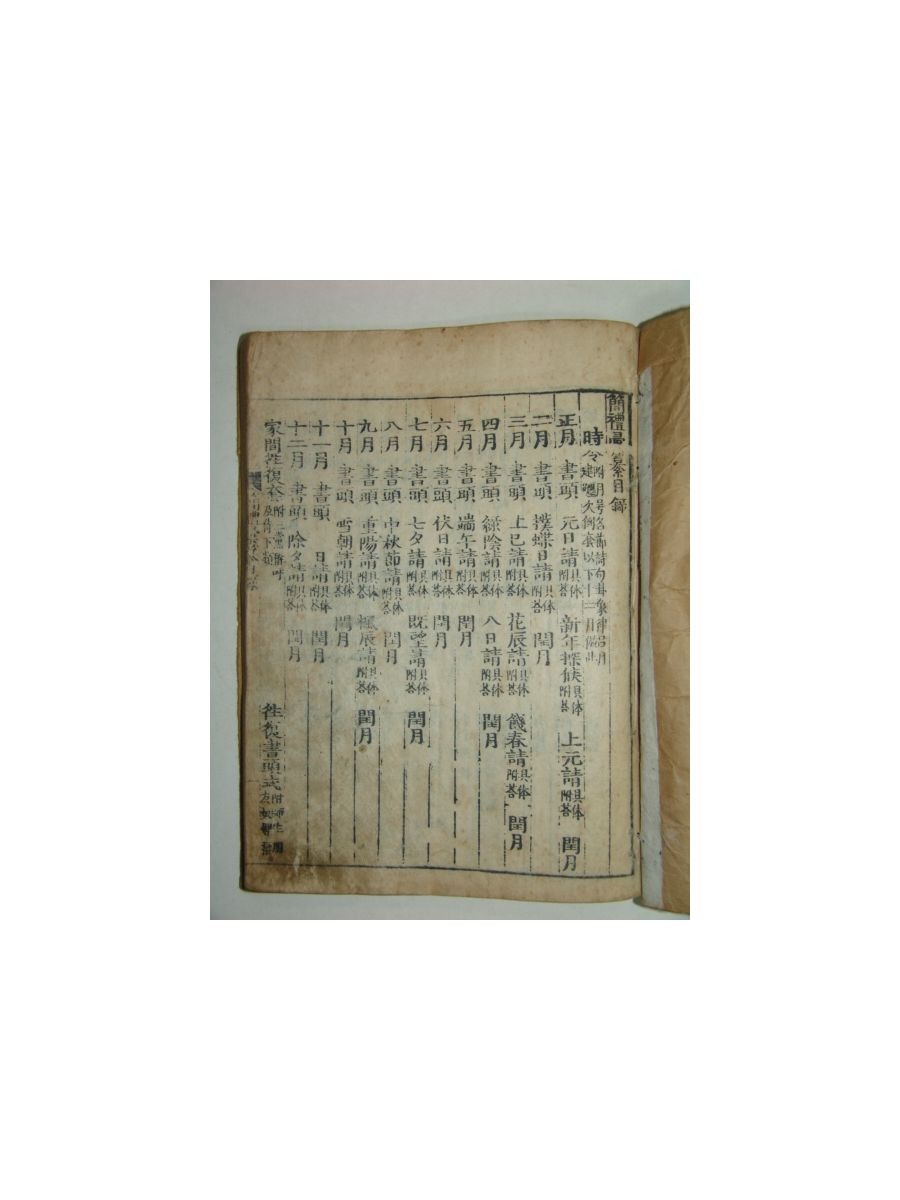 簡禮 纂目錄
時令 附月号名節詩句
正月 書頭 元日請 具体附答 新年探候 具体附答 上元請 具体附答 閏月
二月 書頭 撲蝶日請 具体附答 閏月
三月 書頭 上巳請 具体附答 花辰請 具体附答 餞春請 具体附答 閏月
四月 書頭 綠陰請 具体附答 八日請 具体附答 閏月
五月 書頭 端午請 具体附答 閏月
六月 書頭 伏日請 具体附答 閏月
七月 書頭 七夕請 具体附答 旣望請 具体附答 閏月
八月 書頭 中秋節請 具体附答 閏月
九月 書頭 重陽請 具体附答 楓辰請 具体附答 閏月
十月 書頭 雪朝請 具体附答 閏月
十一月 書頭 日請 具体附答 閏月
十二月 書頭 除夕請 具体附答 閏月
家間徃復套 徃復書頭式